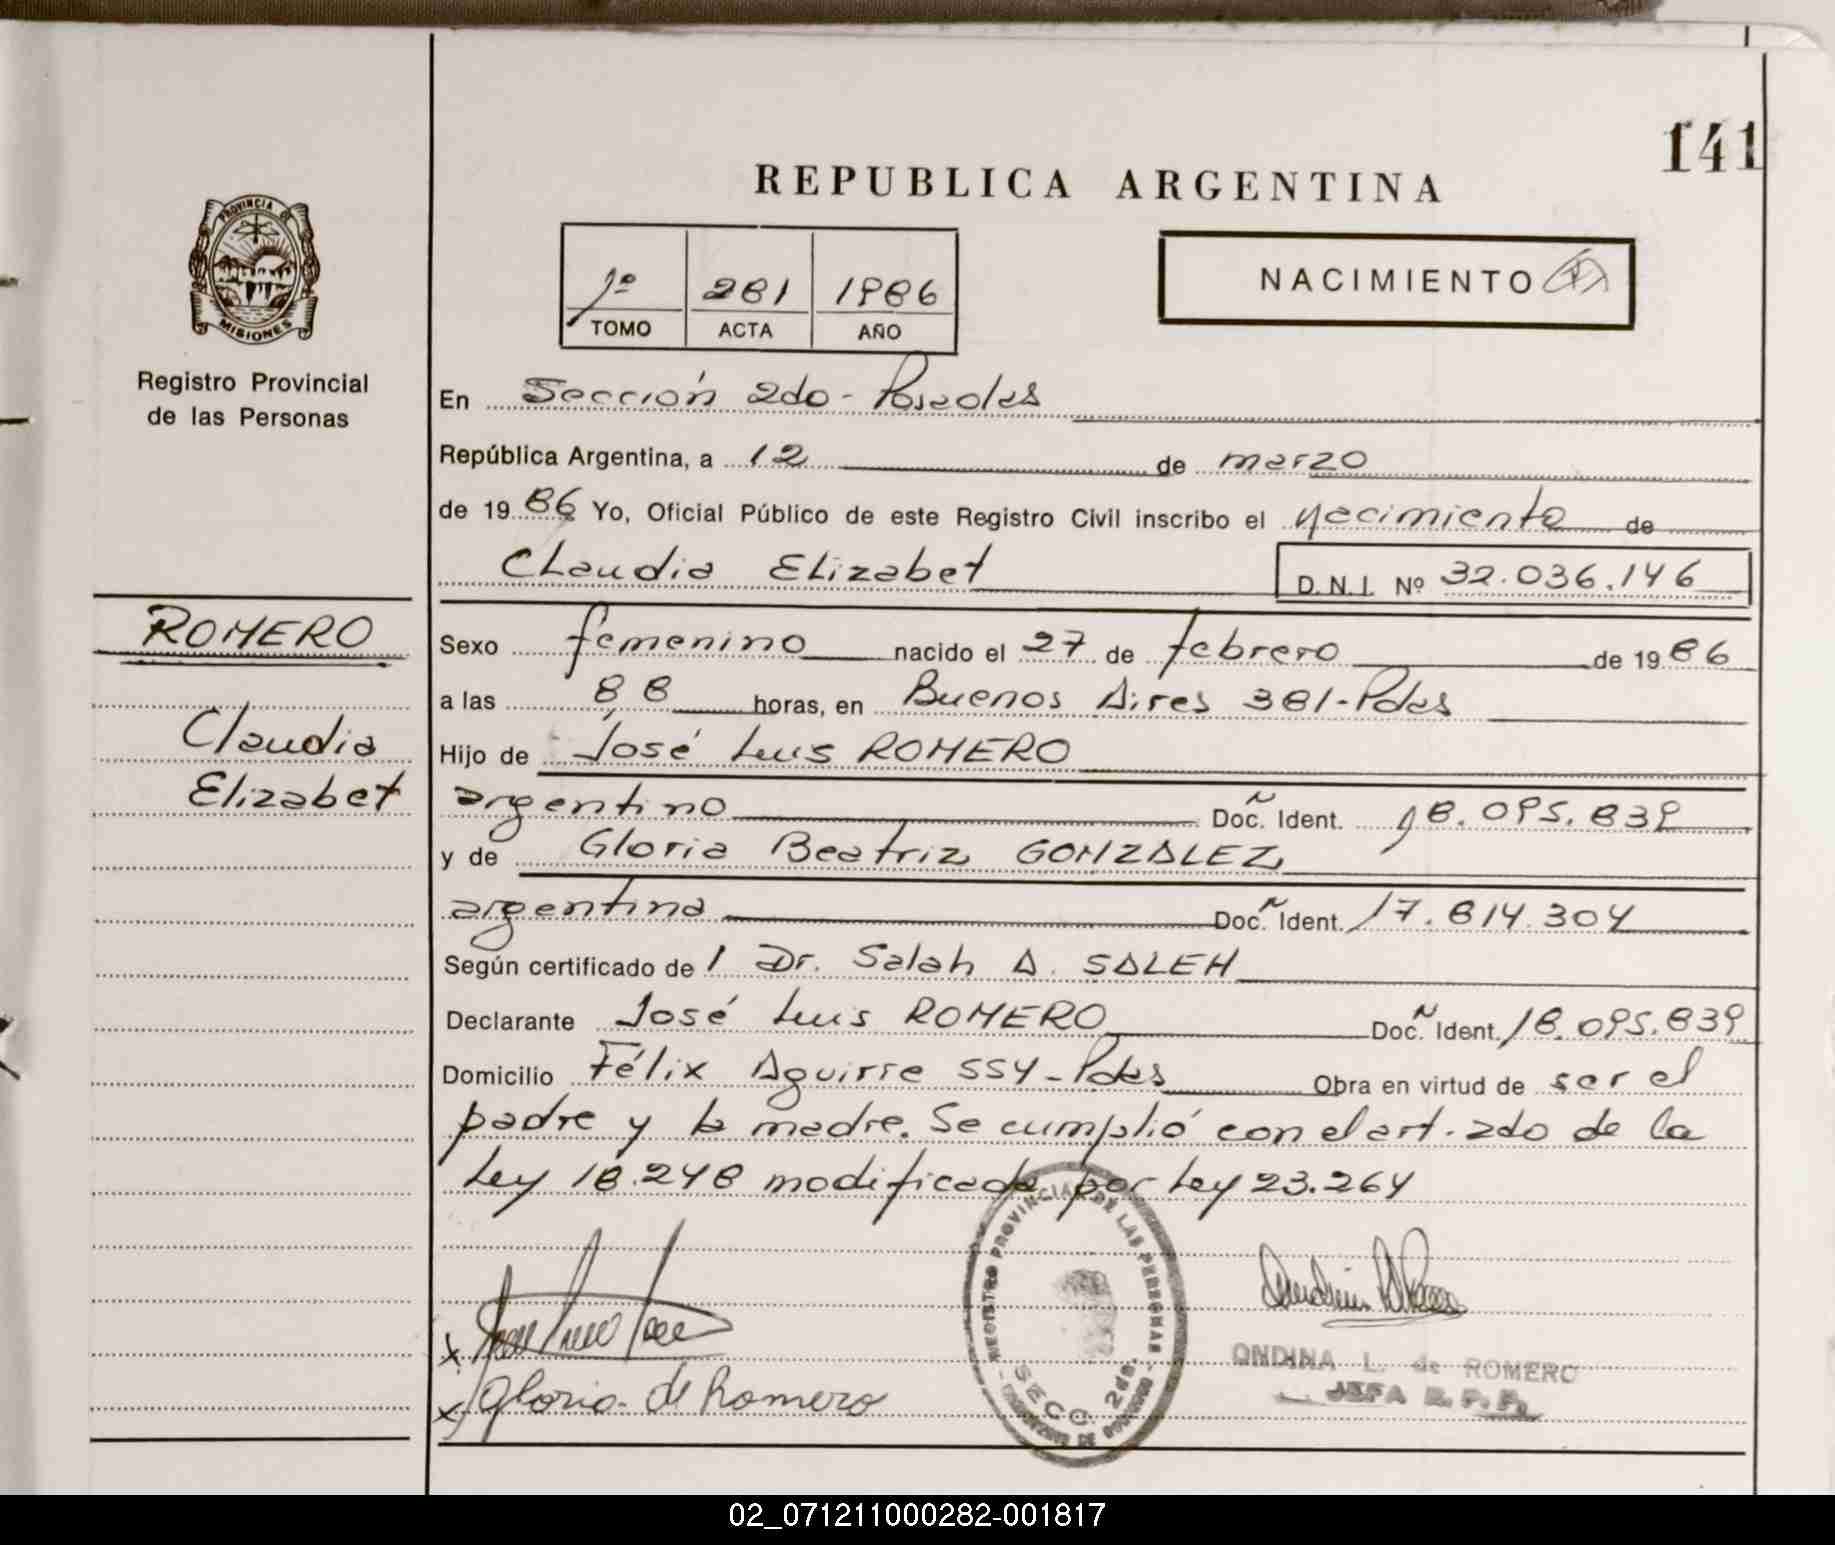 141
REPUBLICA ARGENTINA
PROVINCIA DE
MISIONES
Registro Provincial
de las Personas
1º 281 1986
TOMO ACTA AÑO
NACIMIENTO
En Sección 2do - Posadas
República Argentina, a 12 de marzo
de 1986 Yo, Oficial Público de este Registro Civil inscribo el nacimiento de
Claudia Elizabet
D.N.I. Nº 32.036.146
ROMERO
Claudia
Elizabet
Sexo femenino nacido el 27 de febrero de 1986
a las 8 8 horas, en Buenos Aires 381-Pdas
Hijo de José Luis ROMERO
argentino Doc. Ident. 18.095.839
y de Gloria Beatriz GONZALEZ
argentina Doc. Ident. 17.814.304
Según certificado de 1 Dr. Salah A. SALEH
Declarante José Luis ROMERO Doc. Ident. 18.095.839
Domicilio Félix Aguirre 554-Pdas Obra en virtud de ser el
padre y la madre. Se cumplió con el art. 2do de la
Ley 18.248 modificada por Ley 23.264
REGISTRO PROVINCIAL DE LAS PERSONAS
SECC. 2da.
x
x Gloria de Romero
ONDINA L. de ROMERO
JEFA R. P. P.
02_071211000282-001817